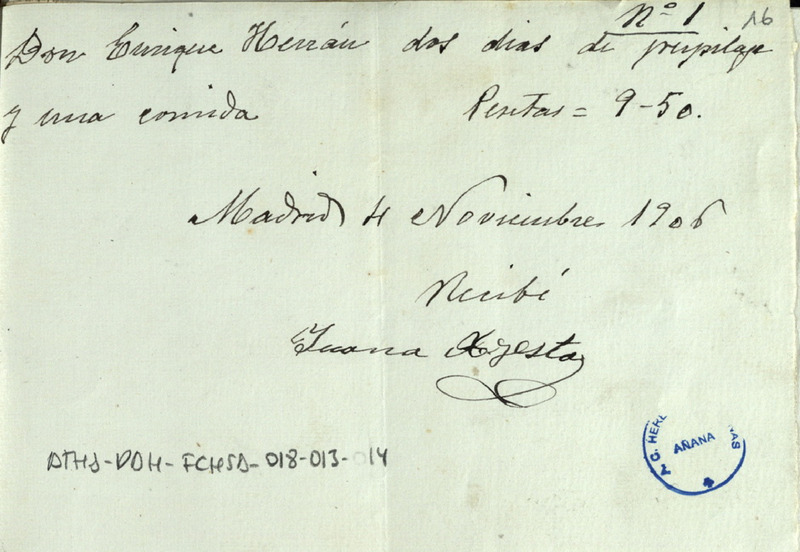 Nº 1 16
Don Enrique Herrán dos dias de pupilage
y una comida Pesetas = 9-50.
Madrid 4 Noviembre 1906
Recibí
Juana
ATHA-DDH-FCHSA-018-013-014
AÑANA